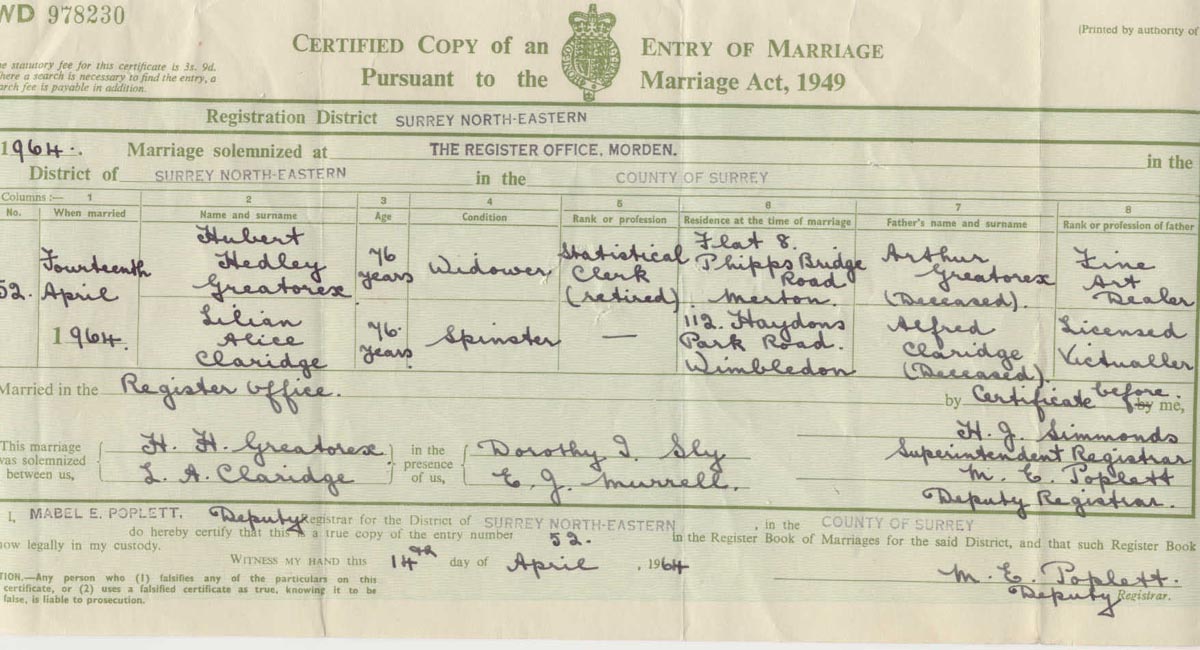 WD 978230
(Printed by authority of
CERTIFIED COPY of an ENTRY OF MARRIAGE
Pursuant to the Marriage Act, 1949
e statutory fee for this certificate is 3s. 9d.
here a search is necessary to find the entry, a
arch fee is payable in addition.
Registration District SURREY NORTH-EASTERN
1964. Marriage solemnized at THE REGISTER OFFICE, MORDEN. in the
District of SURREY NORTH-EASTERN in the COUNTY OF SURREY
Columns :— 1 2 3 4 5 6 7 8
No. When married Name and surname Age Condition Rank or profession Residence at the time of marriage Father's name and surname Rank or profession of father
52. Fourteenth April 1964.
Hubert Hedley Greatorex
76 years
Widower
Statistical Clerk (retired)
Flat 8. Phipps Bridge Road Merton.
Arthur Greatorex (Deceased).
Fine Art Dealer
Lilian Alice Claridge
76. years
Spinster
—
112. Haydons Park Road. Wimbledon
Alfred Claridge (Deceased).
Licensed Victualler
Married in the Register Office. by Certificate before. by me,
This marriage was solemnized between us,
H. H. Greatorex
L. A. Claridge
in the presence of us,
Dorothy I. Sly
E. J. Murrell.
H. J. Simmonds
Superintendent Registrar
M. E. Poplett
Deputy Registrar.
I, MABEL E. POPLETT. Deputy Registrar for the District of SURREY NORTH-EASTERN, in the COUNTY OF SURREY
do hereby certify that this is a true copy of the entry number 52. in the Register Book of Marriages for the said District, and that such Register Book
now legally in my custody.
WITNESS MY HAND this 14th day of April, 1964
M. E. Poplett.
Deputy Registrar.
TION.—Any person who (1) falsifies any of the particulars on this
certificate, or (2) uses a falsified certificate as true, knowing it to be
false, is liable to prosecution.